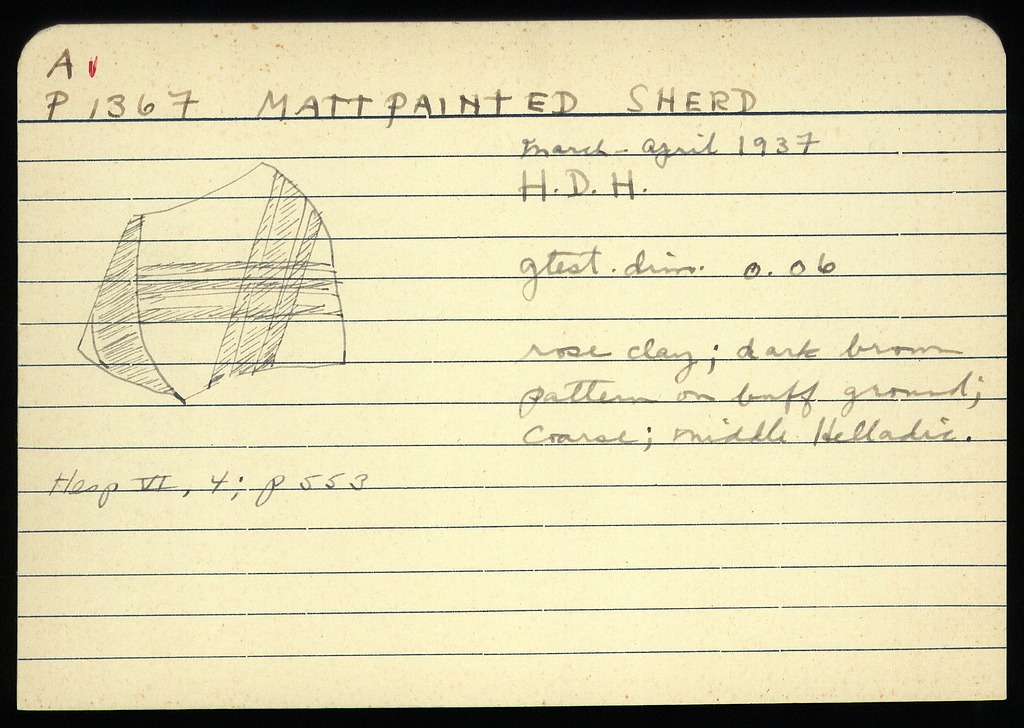 A
P 1367 MATTPAINTED SHERD
march - april 1937
H.D.H.
gtest. dim. 0.06
rose clay; dark brown
pattern on buff ground;
Coarse; middle Helladic.
Hesp VI, 4; p 553